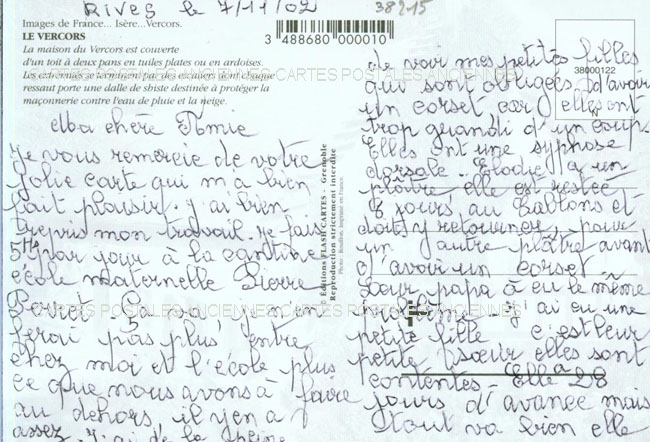 Rives le 7/11/02
38215
Images de France... Isère...Vercors.
LE VERCORS
La maison du Vercors est couverte
d'un toit à deux pans en tuiles plates ou en ardoises.
Les extrémités se terminent par des escaliers dont chaque
ressaut porte une dalle de shiste destinée à protéger la
maçonnerie contre l'eau de pluie et la neige.
3 488680 000010
38000122
Ma chère Mimie
je vous remercie de votre
jolie carte qui m'a bien
fait plaisir. j'ai bien
trepris mon travail. je fais
5H par jour à la cantine
école maternelle Pierre
Perret
ferai pas plus entre
chez moi et l'école plus
ce que nous avons à faire
au dehors, il y en a
assez. j'ai de la peine
Éditions FLASH CARTES - Grenoble
Reproduction strictement interdite
Imprimé en France.
de voir mes petites filles
qui sont obligées d'avoir
un corset car elles ont
trop grandi d'un coup.
Elles ont une syphose
dorsale. Elodie a un
plâtre elle est restée
8 jours au Sablons et
doit y retourner, pour
un autre plâtre avant
d'avoir un corset
Leur papa à eu le même
j'ai eu une
petite fille c'est leur
petite soeur elles sont
contentes - Elle a 28
jours d'avance mais
tout va bien elle
CARTES POSTALES ANCIENNES CARTES POSTALES ANCIENNES
CARTES POSTALES ANCIENNES CARTES POSTALES ANCIENNES